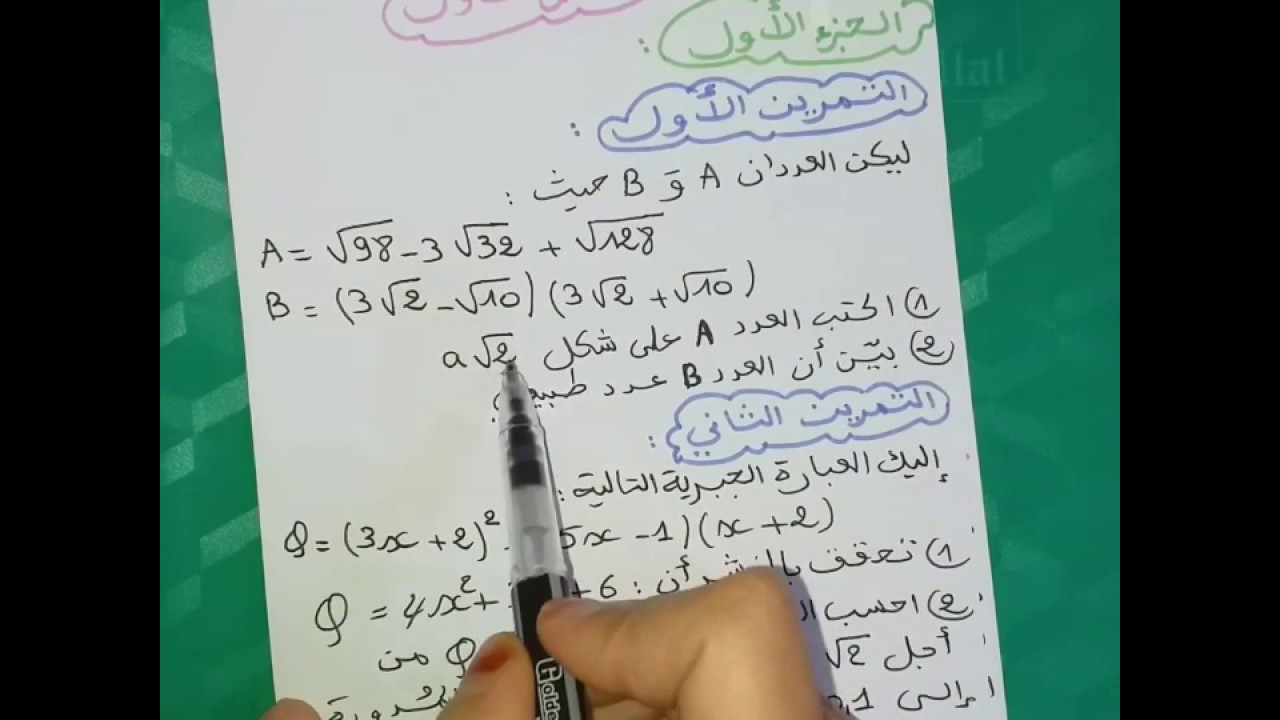 الجزء الأول :
التمرين الأول :
ليكن العددان A و B حيث :
A = √98 - 3√32 + √128
B = (3√2 - √10)(3√2 + √10)
1) اكتب العدد A على شكل a√2
2) بيّن أن العدد B عدد
التمرين الثاني :
إليك العبارة الجبرية التالية :
Q = (3x + 2)² 5x - 1)(x + 2)
1) تحقق بالنشر أن : Q = 4x² + +6
2) احسب
Q من أجل √2
إلى 0,1
lal